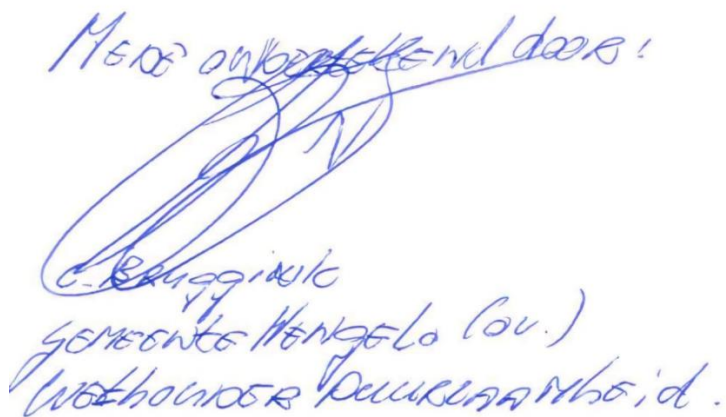 Mede ondertekend door:
C. Bruggink
Gemeente Hengelo (ov.)
Wethouder Duurzaamheid.